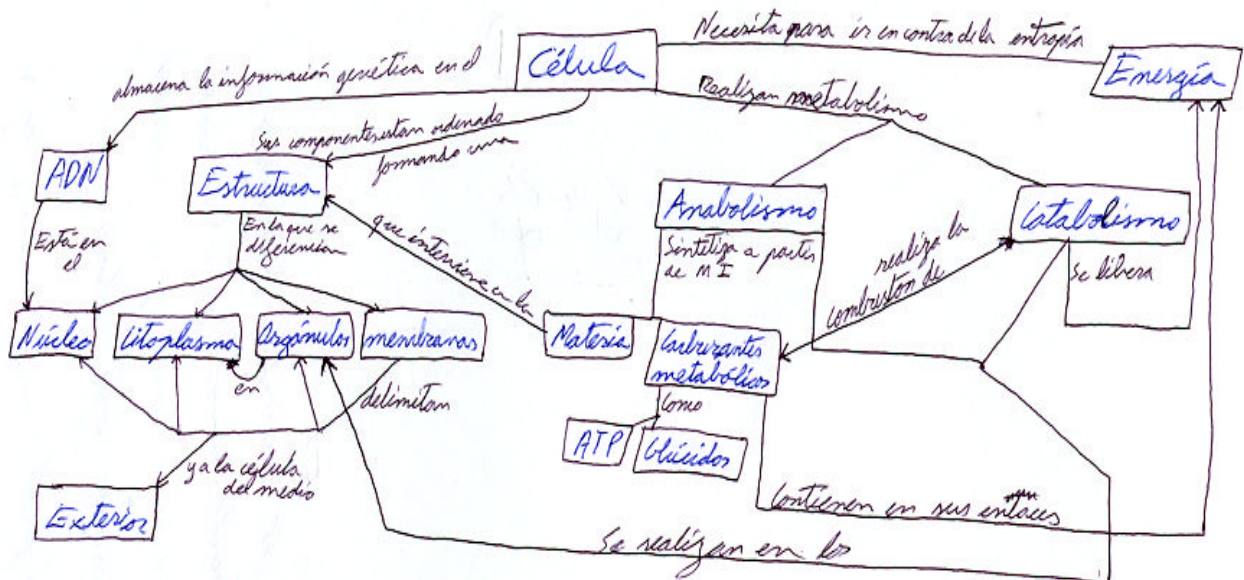 Necesita para ir en contra de la entropía
Célula
Energía
almacena la información genética en el
Realizan metabolismo
Sus componentes estan ordenado
formando una
ADN
Estructura
Anabolismo
Catabolismo
Está en
el
En la que se
diferencian
que interviene en la
Sintetiza a partes
de M I
realiza la
combustión de
Se libera
Núcleo
Citoplasma
Orgánulos
membranas
Materia
Carburantes
metabólicos
en
delimitan
Como
ATP
Glúcidos
y a la célula
del medio
Exterior
Contienen en sus enlaces
Se realizan en los